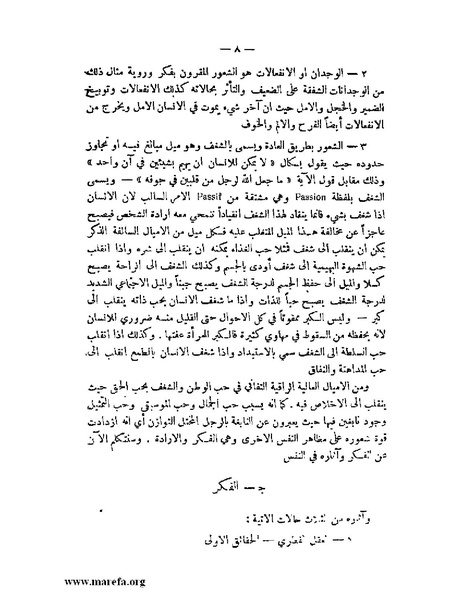 — ٨ —
٢ — الوجدان او الانفعالات هو الشعور المقرون بفكر وروية مثال ذلك
من الوجدانات الشفقة على الضعيف والتأثر بحالاته كذلك الانفعالات وتوبيخ
الضمير والخجل والامل حيث ان آخر شيء يموت في الانسان الامل ويخرج من
الانفعالات أيضاً الفرح والالم والخوف
٣ — الشعور بطريق العادة ويسمى بالشغف وهو ميل مبالغ فيه او تجاوز
حدوده حيث يقول بسكال « لا يمكن للانسان ان يهيم بشيئين في آن واحد »
وذلك مقابل قول الآية « ما جعل الله لرجل من قلبين في جوفه » — ويسمى
الشغف بلفظة Passion وهي مشتقة من Passif الامر السالب لان الانسان
اذا شغف بشيء فانما ينقاد لهذا الشغف انقياداً تنمحي معه ارادة الشخص فيصبح
عاجزاً عن مخالفة هذا الميل المتغلب عليه فكل ميل من الاميال السالفة الذكر
يمكن ان ينقلب الى شغف فمثلا حب الغذاء يمكنه ان ينقلب الى شره واذا انقلب
حب الشهوة البهيمية الى شغف أودى بالجسم وكذلك الشغف الى الراحة يصبح
كسلا والميل الى حفظ الجسم لدرجة الشغف يصبح جبناً والميل الاجتماعي الشديد
لدرجة الشغف يصبح حباً للذات واذا ما شغف الانسان بحب ذاته ينقلب الى
كبر — وليس الكبر ممقوتاً في كل الاحوال حتى القليل منه ضروري للانسان
لانه يحفظه من السقوط في مهاوي كثيرة فالكبر المرأة عفتها . وكذلك اذا انقلب
حب السلطة الى الشغف سمي بالاستبداد واذا شغف الانسان بالطمع انقلب الى
حب المداهنة والنفاق
ومن الاميال العالية الراقية التفاني في حب الوطن والشغف بحب الحق حيث
ينقلب الى الاخلاص فيه . كما انه يسبب حب الجمال وحب الموسيقى وحب التمثيل
وجود نابغين فيها حيث يعبرون عن النابغة بالرجل المختل التوازن أي انه ازدادت
قوة شعوره على مظاهر النفس الاخرى وهي الفكر والارادة . وسنتكلم الآن
عن الفكر وآثاره في النفس
جـ — الفكر
وآثاره من الثلاث حالات الاتية :
١ — تعقل فطري — الحقائق الاولى
www.marefa.org